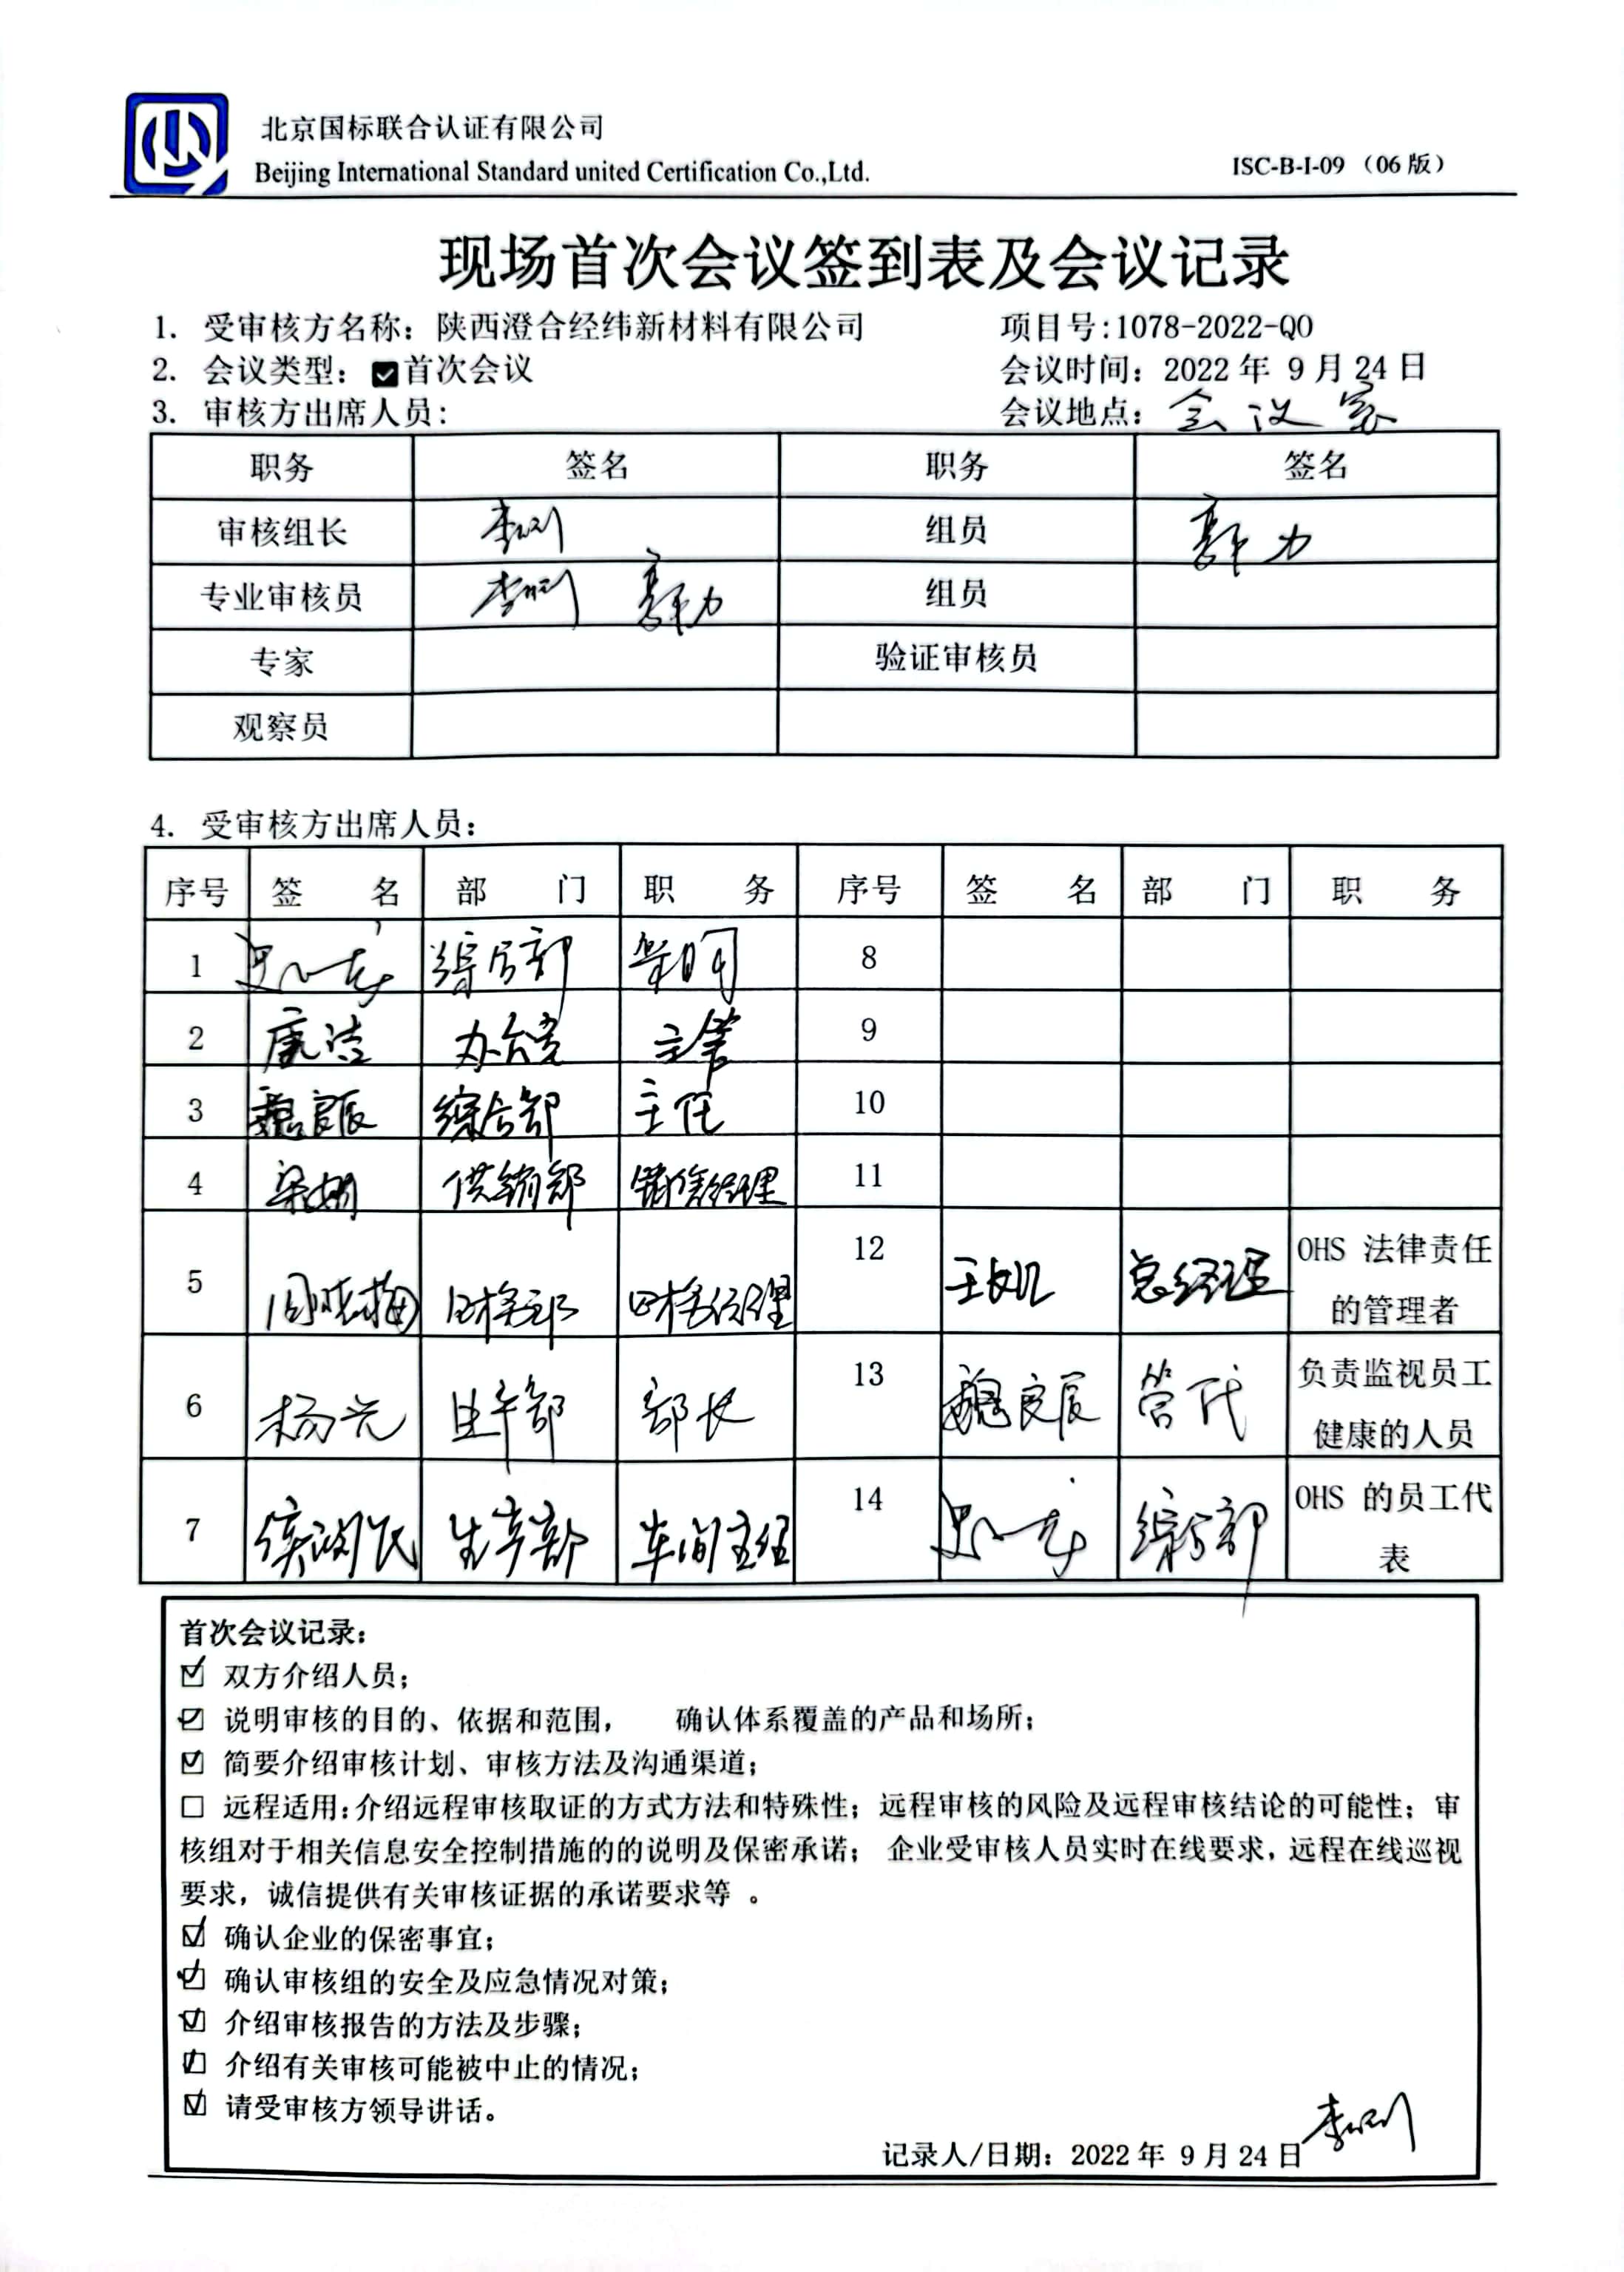 北京国标联合认证有限公司
Beijing International Standard united Certification Co.,Ltd.
ISC-B-I-09 （06 版）
现场首次会议签到表及会议记录
1. 受审核方名称：陕西澄合经纬新材料有限公司 项目号:1078-2022-QO
2. 会议类型：☑首次会议 会议时间：2022 年 9 月 24 日
3. 审核方出席人员: 会议地点：会议室
职务 签名 职务 签名
审核组长 组员 郭力
专业审核员 郭力 组员
专家 验证审核员
观察员
4. 受审核方出席人员:
序号 签 名 部 门 职 务 序号 签 名 部 门 职 务
1 综合部 8
2 康洁 办公室 主管 9
3 魏良辰 综合部 主任 10
4 梁娟 供销部 销售经理 11
5 周晓梅 财务部 财务经理 12 总经理 OHS 法律责任
的管理者
6 杨光 生产部 部长 13 魏良辰 管代 负责监视员工
健康的人员
7 生产部 车间主任 14 综合部 OHS 的员工代
表
首次会议记录:
☑ 双方介绍人员；
☑ 说明审核的目的、依据和范围， 确认体系覆盖的产品和场所；
☑ 简要介绍审核计划、审核方法及沟通渠道；
☐ 远程适用:介绍远程审核取证的方式方法和特殊性；远程审核的风险及远程审核结论的可能性；审
核组对于相关信息安全控制措施的的说明及保密承诺； 企业受审核人员实时在线要求，远程在线巡视
要求，诚信提供有关审核证据的承诺要求等 。
☑ 确认企业的保密事宜；
☑ 确认审核组的安全及应急情况对策；
☑ 介绍审核报告的方法及步骤；
☑ 介绍有关审核可能被中止的情况；
☑ 请受审核方领导讲话。
记录人/日期：2022 年 9 月 24 日